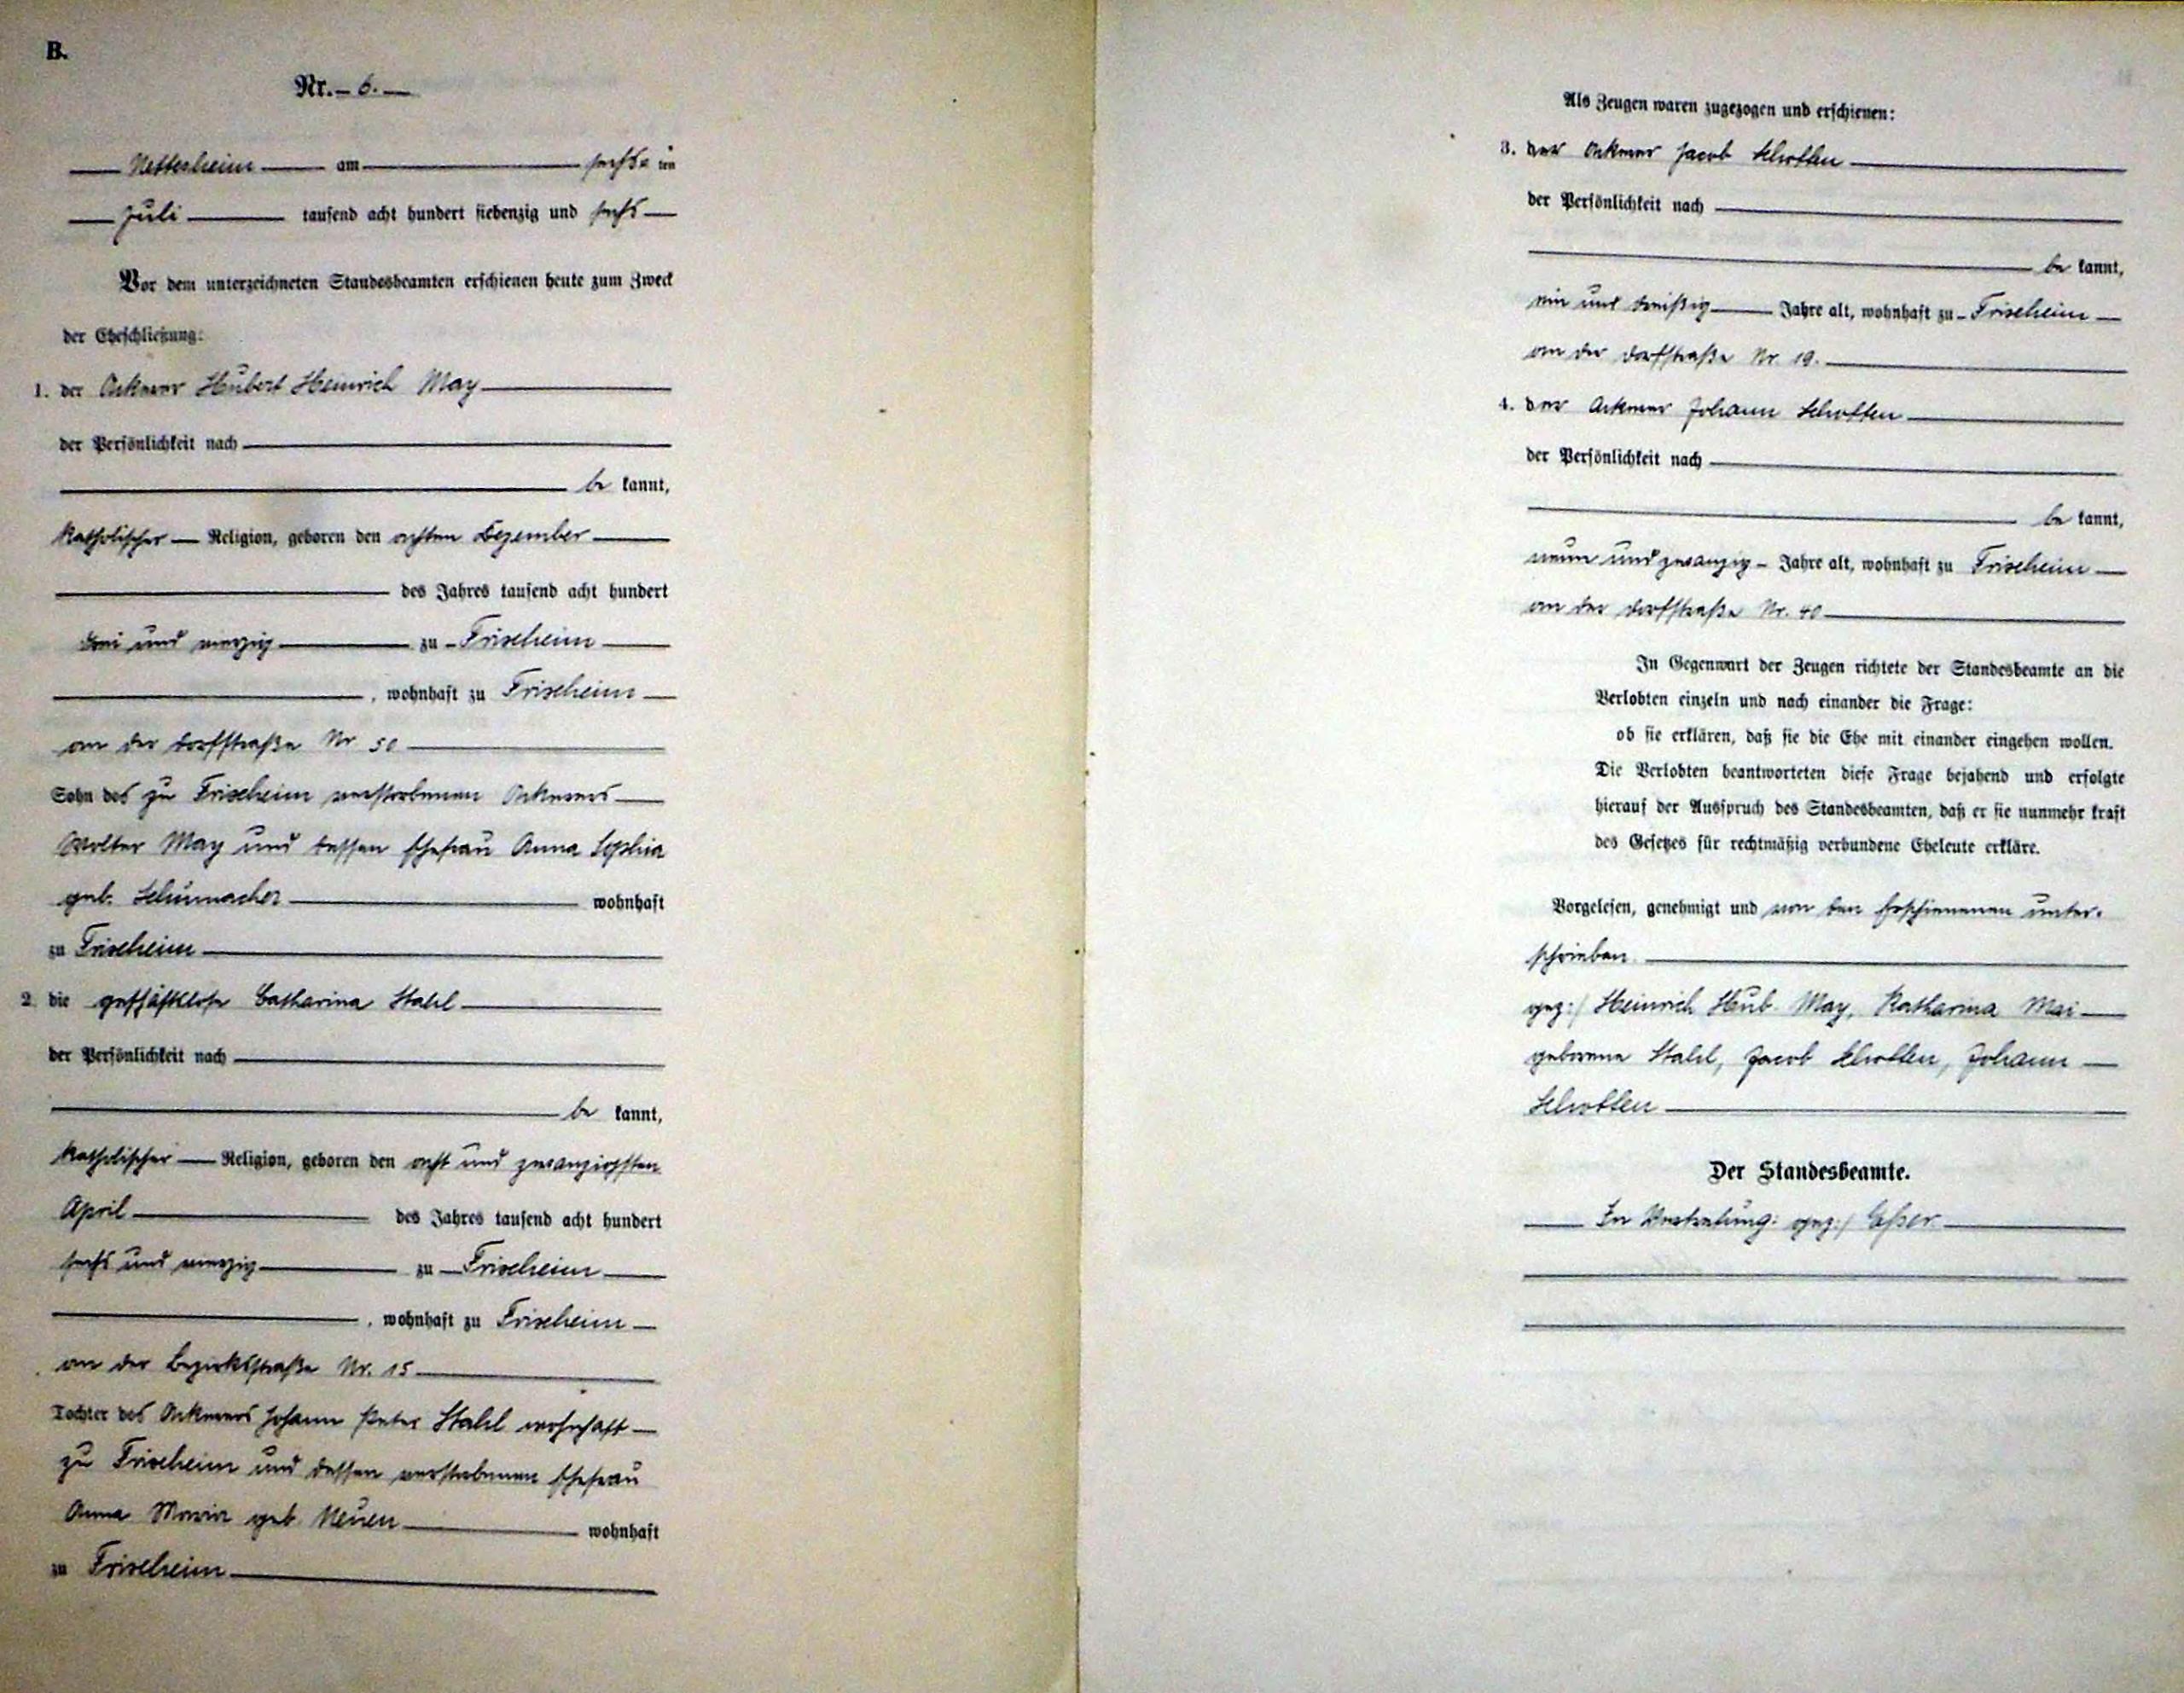 B.
Nr. 6.
Nettesheim am sechs ten
Juli tausend acht hundert siebenzig und sechs
Vor dem unterzeichneten Standesbeamten erschienen heute zum Zweck
der Eheschließung:
1. der Ackerer Hubert Heinrich May
der Persönlichkeit nach
be kannt,
katholischer Religion, geboren den achten Dezember
des Jahres tausend acht hundert
drei und vierzig zu Frixheim
, wohnhaft zu Frixheim
an der Dorfstraße Nr 50
Sohn des zu Frixheim verstorbenen Ackerers
Wolter May und dessen Ehefrau Anna Sophia
geb. Schumacher wohnhaft
zu Frixheim
2. die geschäftslose Catharina Stahl
der Persönlichkeit nach
be kannt,
katholischer Religion, geboren den acht und zwanzigsten
April des Jahres tausend acht hundert
sechs und vierzig zu Frixheim
, wohnhaft zu Frixheim
an der Bezirksstraße Nr. 15
Tochter des Ackerers Johann Peter Stahl wohnhaft
zu Frixheim und dessen verstorbenen Ehefrau
Anna Maria geb Neuen wohnhaft
zu Frixheim
Als Zeugen waren zugezogen und erschienen:
3. der Ackerer Jacob Schotten
der Persönlichkeit nach
be kannt,
ein und dreißig Jahre alt, wohnhaft zu Frixheim
an der Dorfstraße Nr. 19.
4. der Ackerer Johann Schotten
der Persönlichkeit nach
be kannt,
neun und zwanzig Jahre alt, wohnhaft zu Frixheim
an der Dorfstraße Nr. 40
In Gegenwart der Zeugen richtete der Standesbeamte an die
Verlobten einzeln und nach einander die Frage:
ob sie erklären, daß sie die Ehe mit einander eingehen wollen.
Die Verlobten beantworteten diese Frage bejahend und erfolgte
hierauf der Ausspruch des Standesbeamten, daß er sie nunmehr kraft
des Gesetzes für rechtmäßig verbundene Eheleute erkläre.
Vorgelesen, genehmigt und von den Erschienenen unter-
schrieben.
gez:/ Heinrich Hub. May, Katharina Mai
geborene Stahl, Jacob Schotten, Johann
Schotten
Der Standesbeamte.
In Vertretung: gez:/ Esser